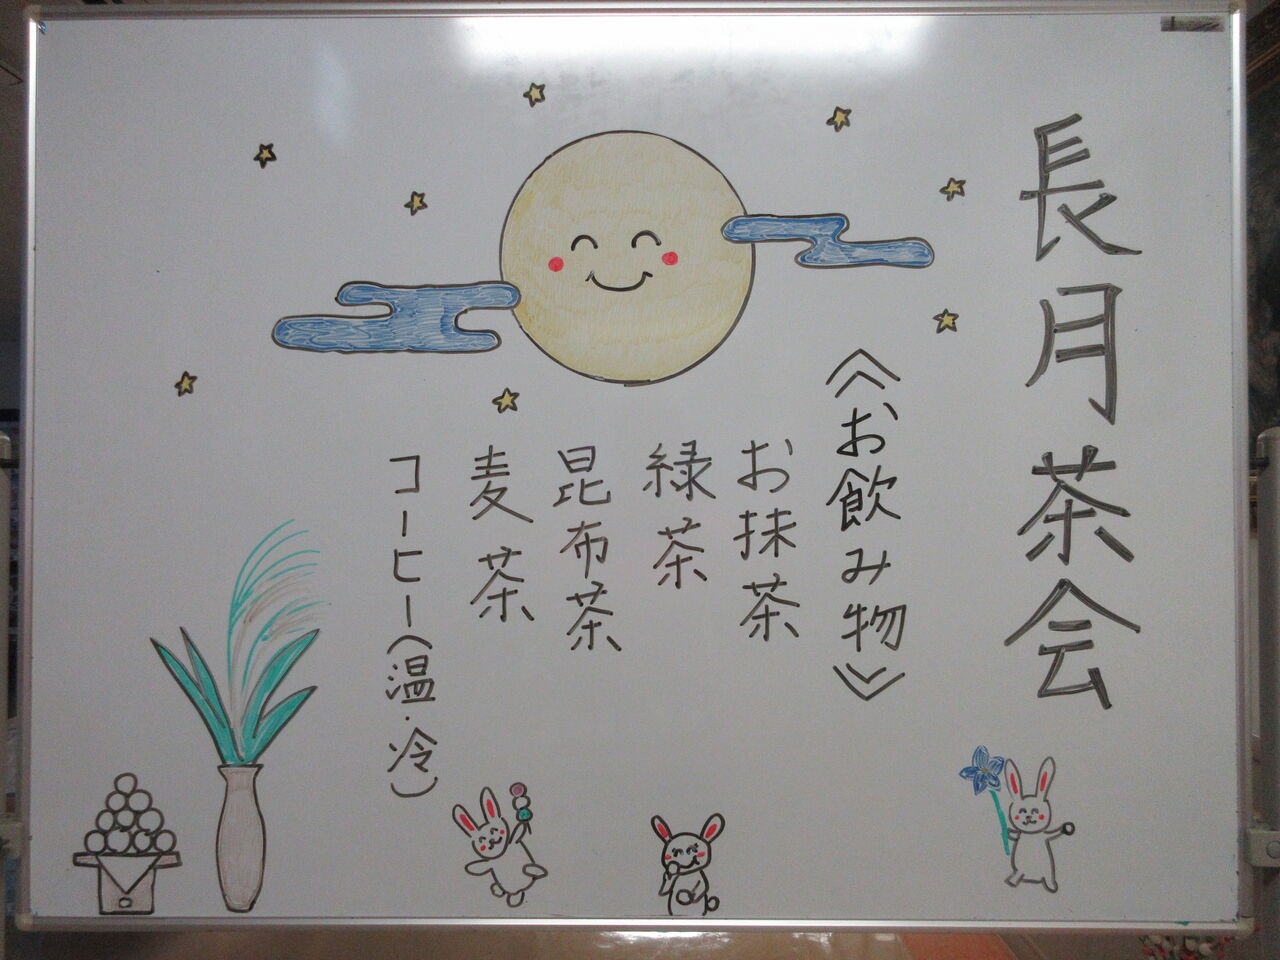 長月茶会
《お飲み物》
お抹茶
緑茶
昆布茶
麦茶
コーヒー(温・冷)